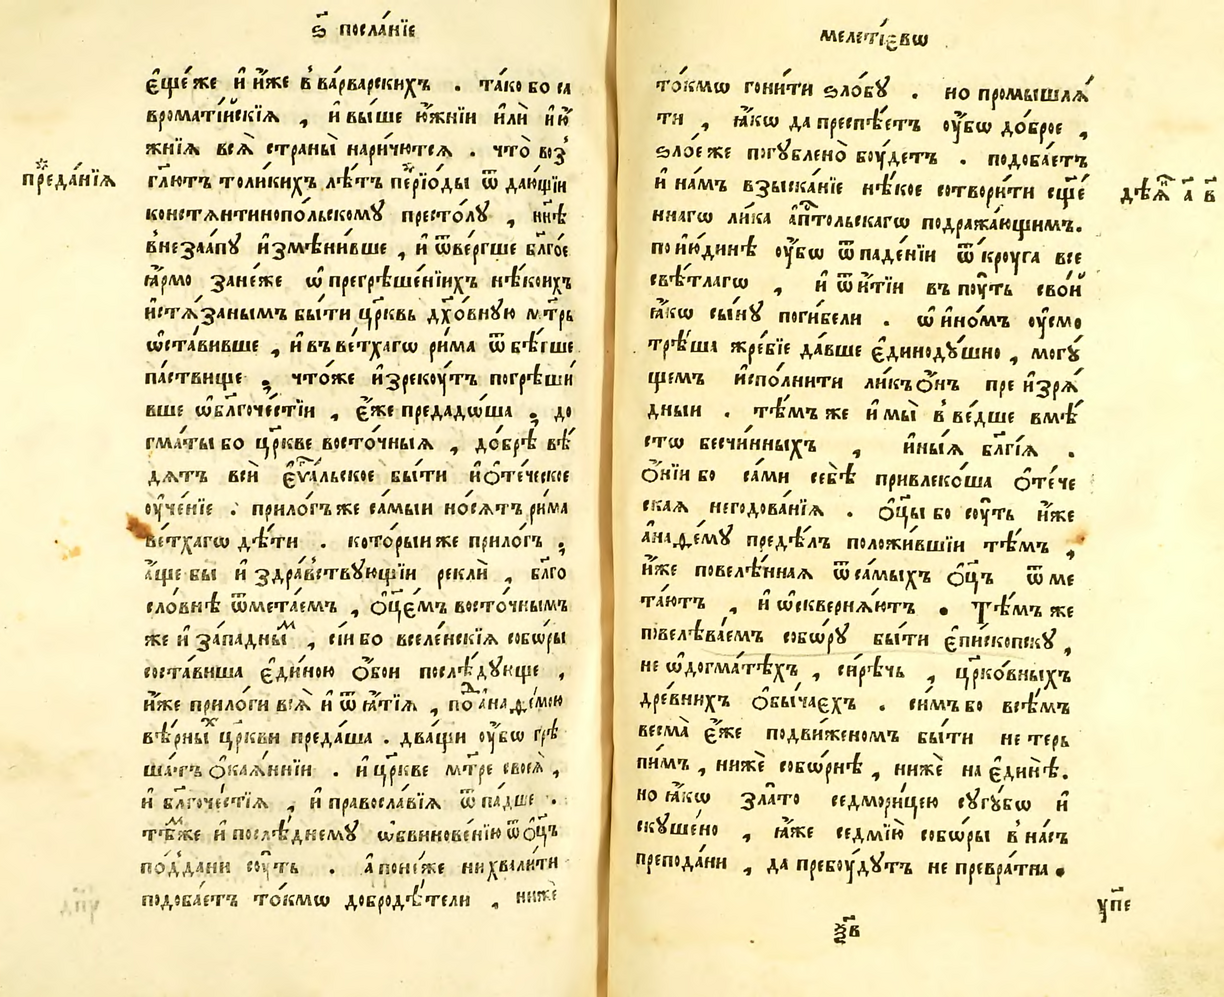 ѕ҃ посла́нїе
є҆ще́ же и҆ и҆́же в̾ ва́рварскихъ . та́ко бо са
вроматі́йскїѧ , и҆ вы́ше ю҆́жнїи и҆лѝ и҆ ю҆́
жнїѧ всѧ̀ страны̀ нарича́ютсѧ . что̀ воз̾
преда́нїѧ
гл҃ютъ толи́кихъ лѣ́тъ пе́рїоды ѿ даю́щїи
константинопо́льскомꙋ престо́лꙋ , нн҃ѣ
внеза́апꙋ и҆змѣни́вше , и҆ ѿве́ргше бл҃го́е
ꙗ҆рмо̀ зане́же ѡ҆ прегрѣше́нїихъ нѣ́коихъ
и҆стѧ́занымъ бы́ти цр҃квь дх҃о́внꙋю мт҃рь
ѡ҆ста́вивше , и҆ въ ве́тхагѡ ри́ма ѿбѣ́гше
па́ствище ; что́же и҆зрекоу́тъ погрѣши́
вше ѡ҆ бл҃гоче́стїи , є҆́же предадѡ́ша ; до
гма́ты бо цр҃кве восто́чныѧ , до́брѣ вѣ́
дѧтъ всѝ є҆ѵⷢ҇а́льское бы́ти и҆ ѻ҆те́ческое
оу҆че́нїе . прило́гъ же са́мыи но́сѧтъ ри́ма
ве́тхагѡ дѣ́ти . кото́рыи же прило́гъ ;
а҆́ще бы и҆ здра́вствꙋющїи реклѝ , бл҃го
сло́внѣ ѿмета́емъ , ѻ҆ц҃є́мъ восто́чнымъ
же и҆ за́падныⷨ , сі́и бо вселе́нскїѧ собѡ́ры
соста́виша є҆ди́ною ѻ҆бо́и послѣ́дꙋюще ,
и҆́же прило́ги всѧ̀ и҆ ѿѧ́тїѧ , поⷣ а҆на́ѳемою
вѣ́рныⷯ цр҃кви преда́ша . два́щи оу҆́бѡ грѣ
ша́тъ ѻ҆каѧ́ннїи . и҆ цр҃кве мт҃ре своеѧ̀ ,
и҆ бл҃гоче́стїѧ , и҆ правосла́вїѧ ѿпа́дше .
тѣⷨже и҆ послѣ́днемꙋ ѡ҆бвинове́нїю ѿ ѻ҆ц҃ъ
по́ддани сꙋ́ть . а҆ поне́же ни хвали́ти
подоба́етъ то́кмѡ добродѣ́тели , нижѐ
меле́тїєвѡ
то́кмѡ гони́ти ѕло́бꙋ . но промышлѧ́
ти , ꙗ҆́кѡ да преспѣ́етъ оу҆́бѡ до́брое ,
ѕло́е же погꙋ́блено боу́детъ . подоба́етъ
и҆ на́мъ взыска́нїе нѣ́кое сотвори́ти сщ҃е́
дѣѧ҃ а҃ в҃
ннагѡ ли́ка а҆пⷭ҇тольскагѡ подража́ющимъ.
по и҆ю́динѣ оу҆́бѡ ѿпаде́нїи ѿ кроу́га все
свѣ́тлагѡ , и҆ ѿи́тїи въ поу́ть сво́й
ꙗ҆́кѡ сы́нꙋ поги́бели . ѡ҆ и҆но́мъ оу҆смо
трѣ́ша жре́бїе да́вше є҆динодꙋ́шно , могꙋ́
щемъ и҆спо́лнити ли́къ ѻ҆́нъ пре и҆зрѧ́
дныи . тѣ́мъ же и҆ мы̀ в̾ ве́дше вмѣ́
стѡ бесчи́нныхъ , и҆ны́ѧ бл҃гі́ѧ .
ѻ҆́нїи бо са́ми себѣ̀ привлеко́ша ѻ҆те́че
скаѧ негодова́нїѧ . ѻ҆ц҃ы̀ бо сꙋ́ть и҆́же
а҆на́ѳемꙋ преде́лъ положи́вшїи тѣ́мъ ,
и҆́же повелѣ́ннаѧ ѿ са́мыхъ ѻ҆ц҃ъ ѿме
та́ютъ , и҆ ѡ҆сквернѧ́ютъ . Тѣ́мъ же
повелѣва́емъ собѡ́рꙋ бы́ти є҆пи́скопскꙋ ,
не ѡ҆ догма́тѣхъ , си́рѣчь , цр҃ко́вныхъ
дре́внихъ ѻ҆бы́чаєхъ . си́мъ бо всѣ́мъ
весма̀ є҆́же подви́женомъ бы́ти не терь
пи́мъ , нижѐ собѡ́рнѣ , нижѐ на є҆ди́нѣ.
но ꙗ҆́кѡ зла́то седмори́цею сꙋгꙋ́бѡ и҆
скꙋше́но , ꙗ҆́же седмїю̀ собѡ́ры в̾ на́съ
препода́ни , да пребоу́дꙋтъ не превра́тна .
ѯ҃в
ѵ҃пе